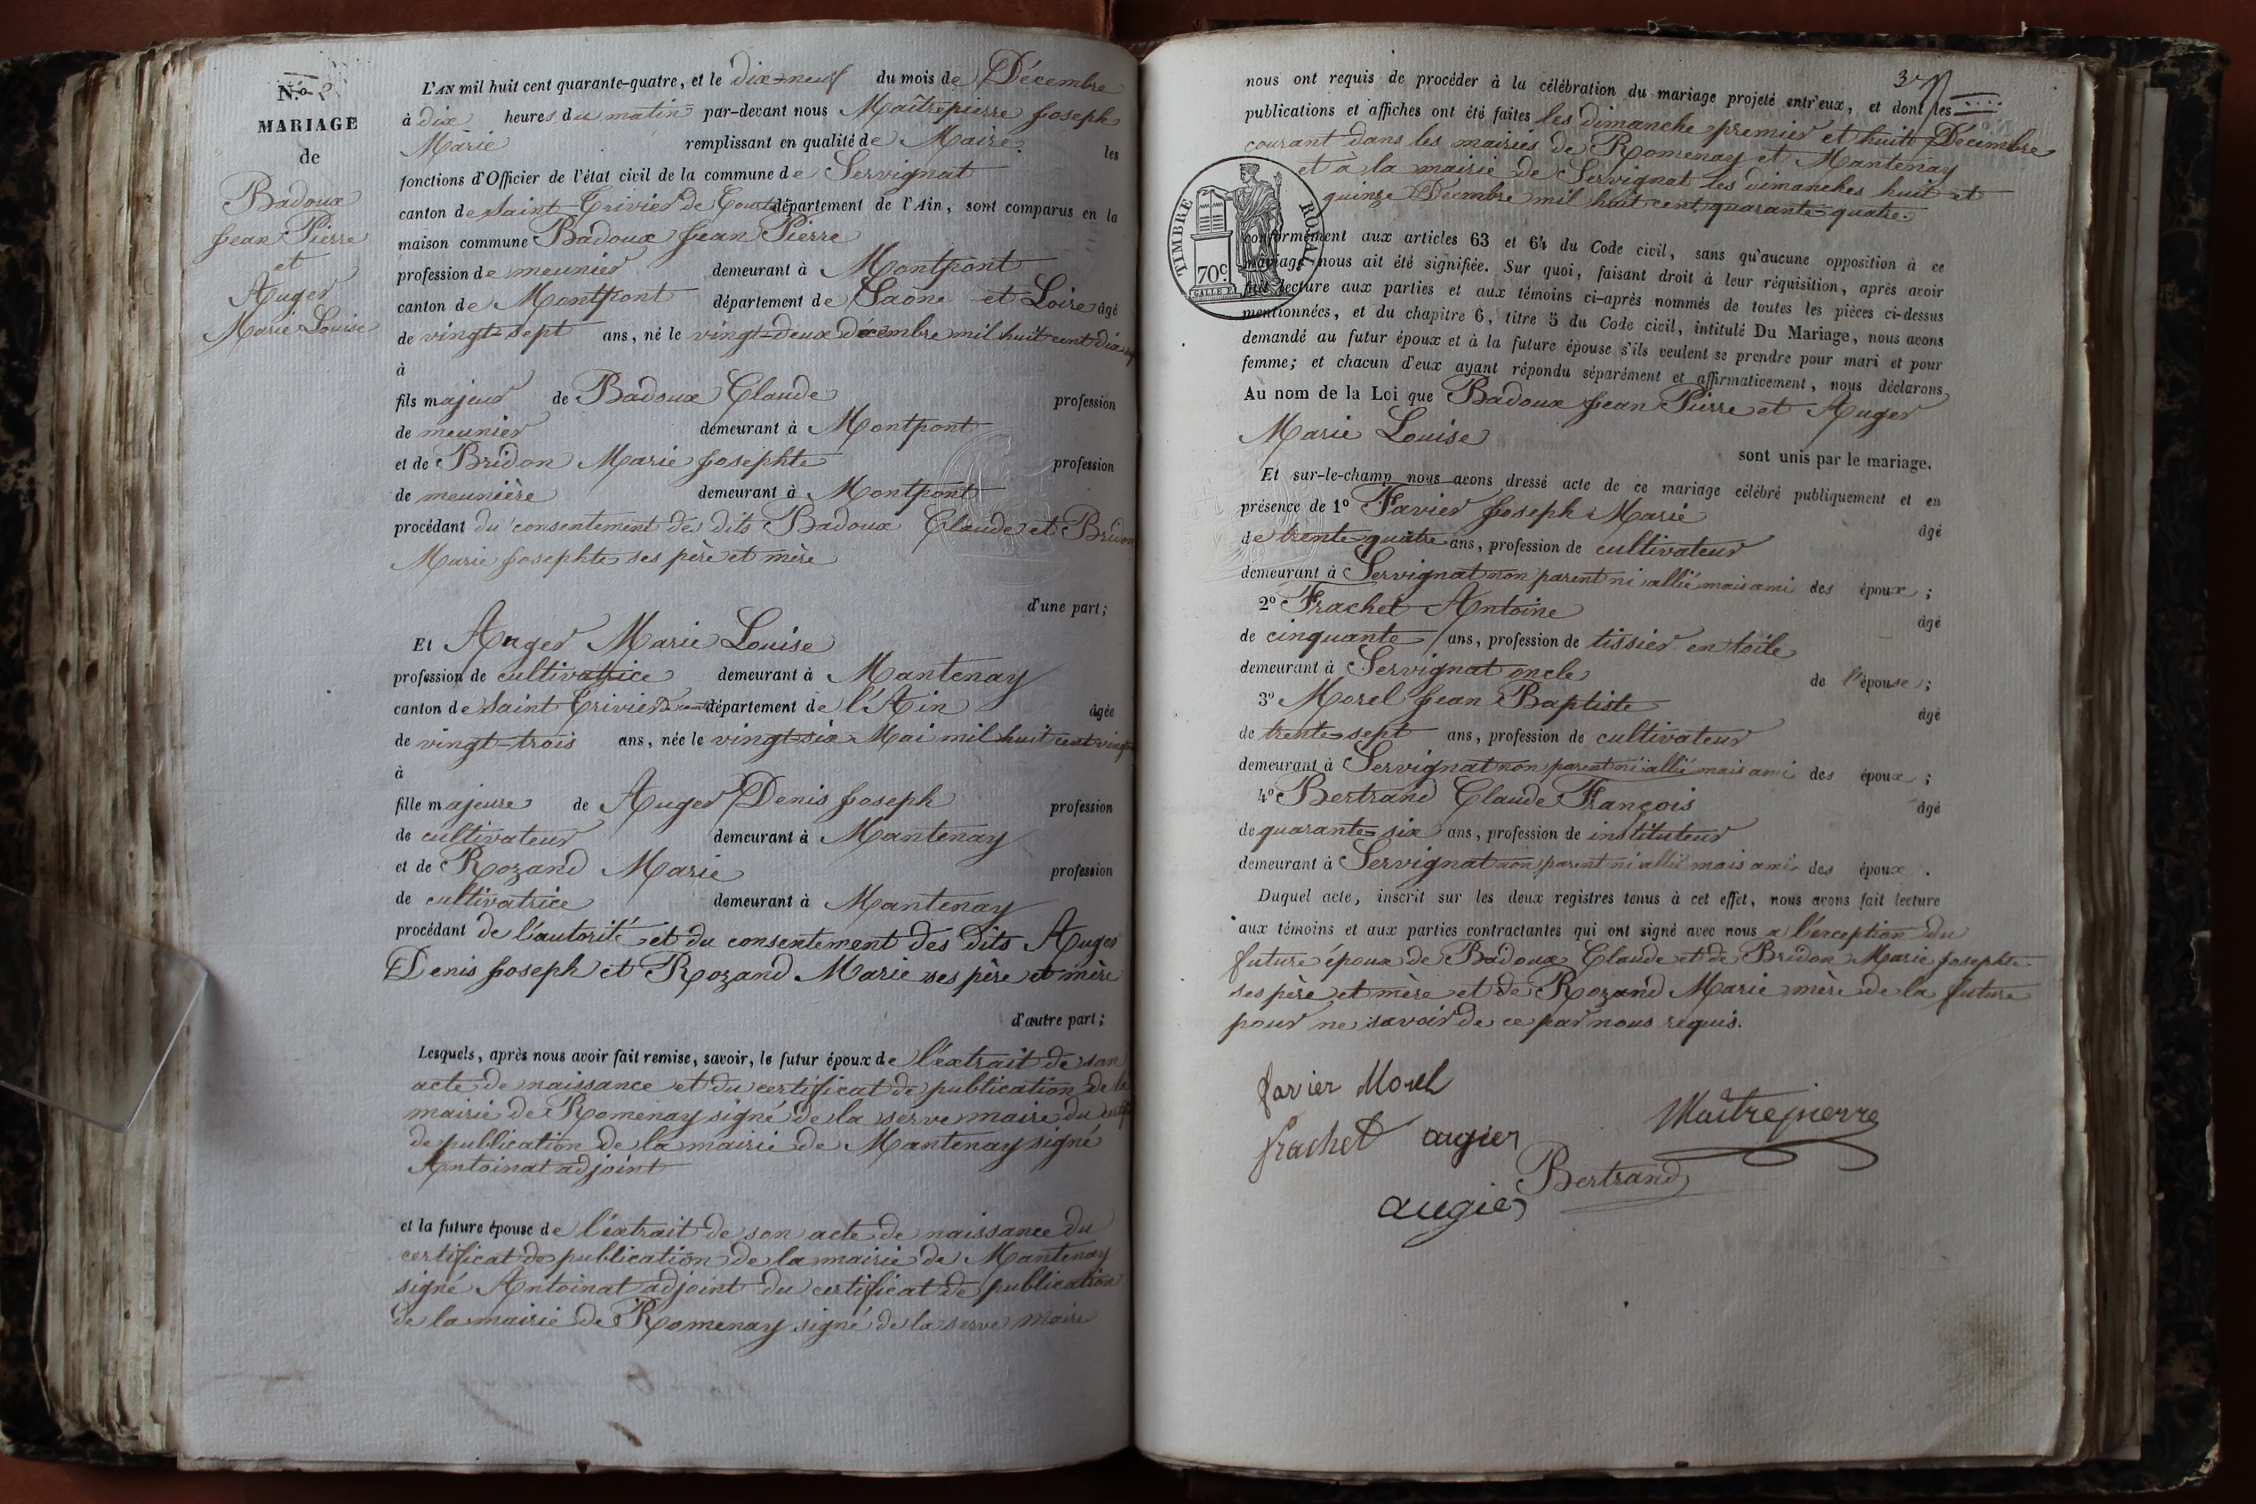 N.o 2
MARIAGE
de
Badoux
Jean Pierre
et
Auger
Marie Louise
L'AN mil huit cent quarante-quatre, et le dix-neuf du mois de Décembre
à dix heures du matin par-devant nous Maîtrepierre Joseph
Marie remplissant en qualité de Maire les
fonctions d'Officier de l'état civil de la commune de Servignat
canton de Saint Trivier de Courtes département de l'Ain, sont comparus en la
maison commune Badoux Jean Pierre
profession de meunier demeurant à Montpont
canton de Montpont département de Saône et Loire âgé
de vingt-sept ans, né le vingt-deux décembre mil huit cent dix sept
à
fils majeur de Badoux Claude profession
de meunier demeurant à Montpont
et de Bridon Marie Josephte profession
de meunière demeurant à Montpont
procédant du consentement des dits Badoux Claude et Bridon
Marie Josephte ses père et mère
d'une part;
Et Auger Marie Louise
profession de cultivatrice demeurant à Mantenay
canton de Saint Trivier département de l'Ain âgée
de vingt-trois ans, née le vingt-six Mai mil huit cent vingt
à
fille majeure de Auger Denis Joseph profession
de cultivateur demeurant à Mantenay
et de Rozand Marie profession
de cultivatrice demeurant à Mantenay
procédant de l'autorité et du consentement des dits Auger
Denis Joseph et Rozand Marie ses père et mère
d'autre part;
Lesquels, après nous avoir fait remise, savoir, le futur époux de l'extrait de son
acte de naissance et du certificat de publication de la
mairie de Romenay signé de la serve maire du certif
de publication de la mairie de Mantenay signé
Antoinat adjoint
et la future épouse de l'extrait de son acte de naissance du
certificat de publication de la mairie de Mantenay
signé Antoinat adjoint du certificat de publication
de la mairie de Romenay signé de la serve maire
3
nous ont requis de procéder à la célébration du mariage projeté entr'eux, et dont les
publications et affiches ont été faites les dimanche premier et huit Décembre
courant dans les mairies de Romenay et Mantenay
et à la mairie de Servignat les dimanches huit et
quinze Décembre mil huit cent quarante-quatre.
TIMBRE ROYAL
70c
conformément aux articles 63 et 64 du Code civil, sans qu'aucune opposition à ce
mariage nous ait été signifiée. Sur quoi, faisant droit à leur réquisition, après avoir
fait lecture aux parties et aux témoins ci-après nommés de toutes les pièces ci-dessus
mentionnées, et du chapitre 6, titre 5 du Code civil, intitulé Du Mariage, nous avons
demandé au futur époux et à la future épouse s'ils veulent se prendre pour mari et pour
femme; et chacun d'eux ayant répondu séparément et affirmativement, nous déclarons
Au nom de la Loi que Badoux Jean Pierre et Auger
Marie Louise
sont unis par le mariage.
Et sur-le-champ nous avons dressé acte de ce mariage célébré publiquement et en
présence de 1o Favier Joseph Marie âgé
de trente quatre ans, profession de cultivateur
demeurant à Servignat non parent ni allié mais ami des époux;
2o Frachet Antoine âgé
de cinquante ans, profession de tissier en toile
demeurant à Servignat oncle de l'épouse;
3o Morel Jean Baptiste âgé
de trente-sept ans, profession de cultivateur
demeurant à Servignat non parent ni allié mais ami des époux;
4o Bertrand Claude François âgé
de quarante-six ans, profession de instituteur
demeurant à Servignat non parent ni allié mais ami des époux.
Duquel acte, inscrit sur les deux registres tenus à cet effet, nous avons fait lecture
aux témoins et aux parties contractantes qui ont signé avec nous à l'exception du
future époux de Badoux Claude et de Bridon Marie Josephte
ses père et mère et de Rozand Marie mère de la future
pour ne savoir de ce par nous requis.
favier Morel
Maîtrepierre
frachet augier
Bertrand
augier